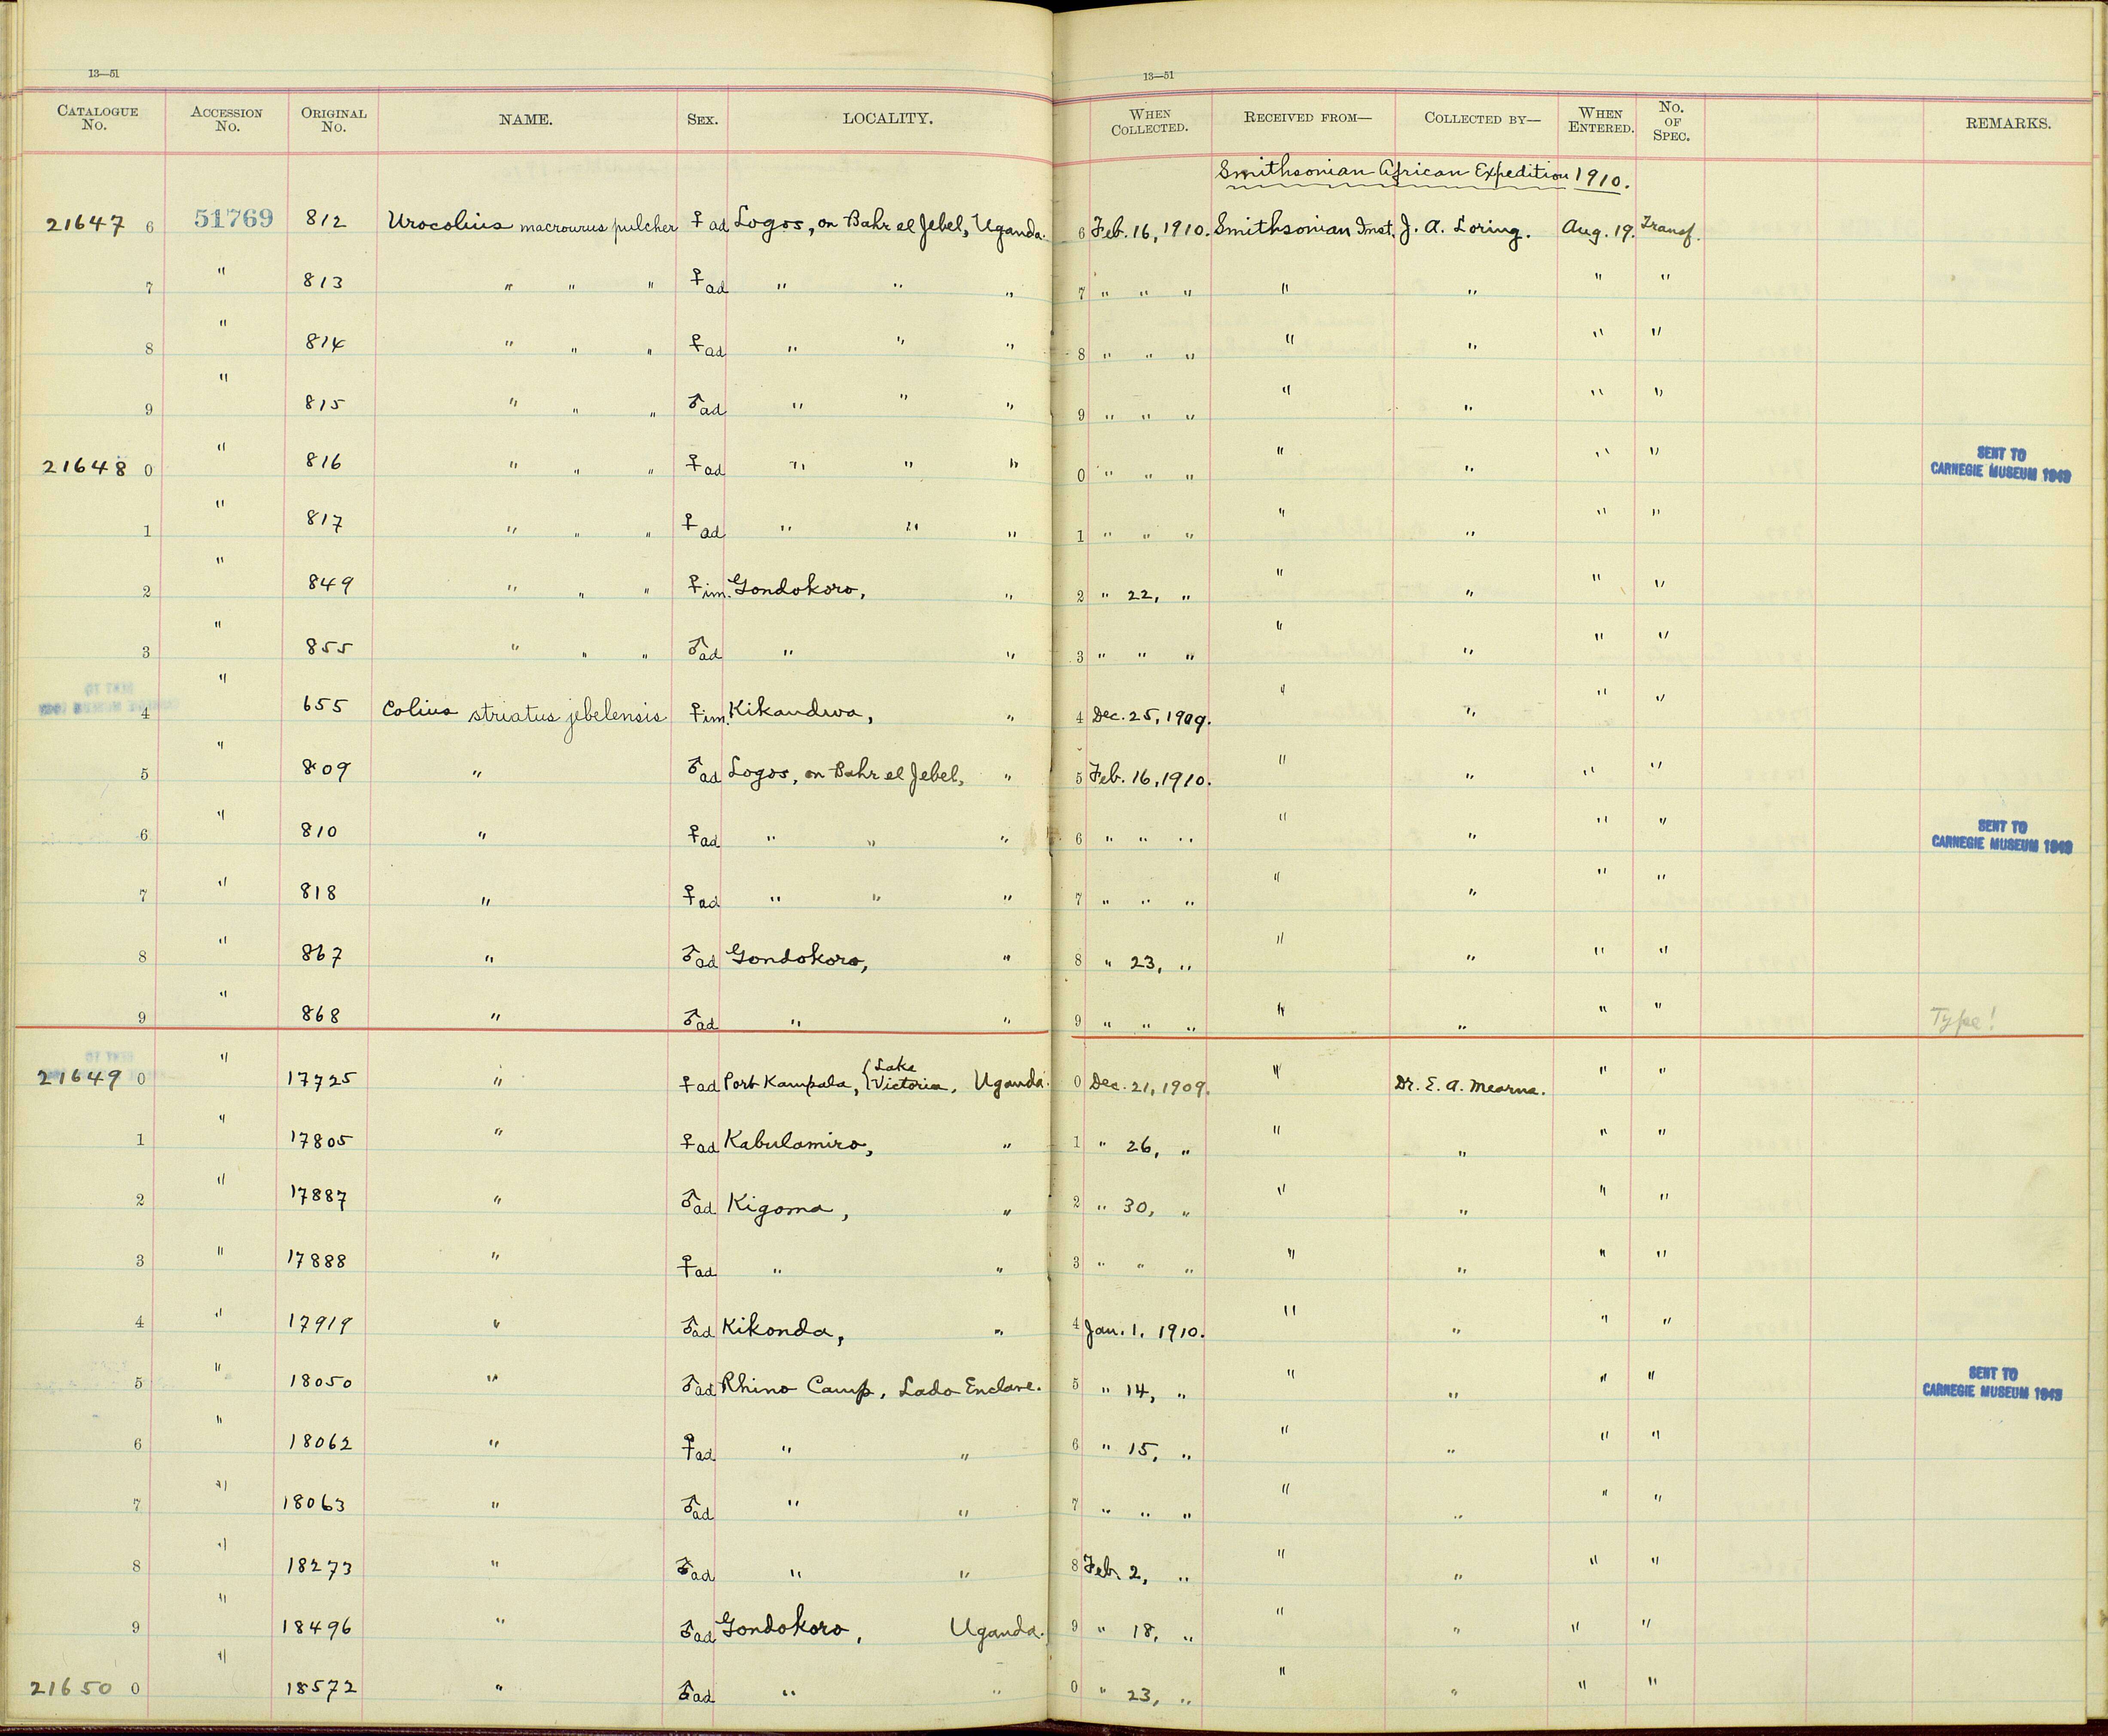 13—51
13—51
CATALOGUE No. ACCESSION No. ORIGINAL No. NAME. SEX. LOCALITY. WHEN COLLECTED. RECEIVED FROM— COLLECTED BY— WHEN ENTERED. No. OF SPEC. REMARKS.
Smithsonian African Expedition 1910.
21647 6 51769 812 Urocolius macrourus pulcher ♀ ad Logos, on Bahr el Jebel, Uganda. 6 Feb. 16, 1910. Smithsonian Inst. J. A. Loring. Aug. 19. Transf.
7 " 813 " " " ♀ ad " " " 7 " " " " " " "
8 " 814 " " " ♀ ad " " " 8 " " " " " " "
9 " 815 " " " ♂ ad " " " 9 " " " " " " "
21648 0 " 816 " " " ♀ ad " " " 0 " " " " " " " SENT TO CARNEGIE MUSEUM 1949
1 " 817 " " " ♀ ad " " " 1 " " " " " " "
2 " 849 " " " ♀ im. Gondokoro, " 2 " 22, " " " " "
3 " 855 " " " ♂ ad " " 3 " " " " " " "
4 " 655 Colius striatus jebelensis ♀ im. Kikandwa, " 4 Dec. 25, 1909. " " " "
5 " 809 " ♂ ad Logos, on Bahr el Jebel, " 5 Feb. 16, 1910. " " " "
6 " 810 " ♀ ad " " " 6 " " " " " " " SENT TO CARNEGIE MUSEUM 1949
7 " 818 " ♀ ad " " " 7 " " " " " " "
8 " 867 " ♂ ad Gondokoro, " 8 " 23, " " " " "
9 " 868 " ♂ ad " " 9 " " " " " " " Type!
21649 0 " 17725 " ♀ ad Port Kampala, {Lake Victoria, Uganda. 0 Dec. 21, 1909. " Dr. E. A. Mearns. " "
1 " 17805 " ♀ ad Kabulamiro, " 1 " 26, " " " " "
2 " 17887 " ♂ ad Kigoma, " 2 " 30, " " " " "
3 " 17888 " ♀ ad " " 3 " " " " " " "
4 " 17919 " ♂ ad Kikonda, " 4 Jan. 1, 1910. " " " "
5 " 18050 " ♂ ad Rhino Camp, Lado Enclave. 5 " 14, " " " " " SENT TO CARNEGIE MUSEUM 1949
6 " 18062 " ♀ ad " " 6 " 15, " " " " "
7 " 18063 " ♂ ad " " 7 " " " " " " "
8 " 18273 " ♂ ad " " 8 Feb. 2, " " " " "
9 " 18496 " ♂ ad Gondokoro, Uganda. 9 " 18, " " " " "
21650 0 " 18572 " ♂ ad " " 0 " 23, " " " " "